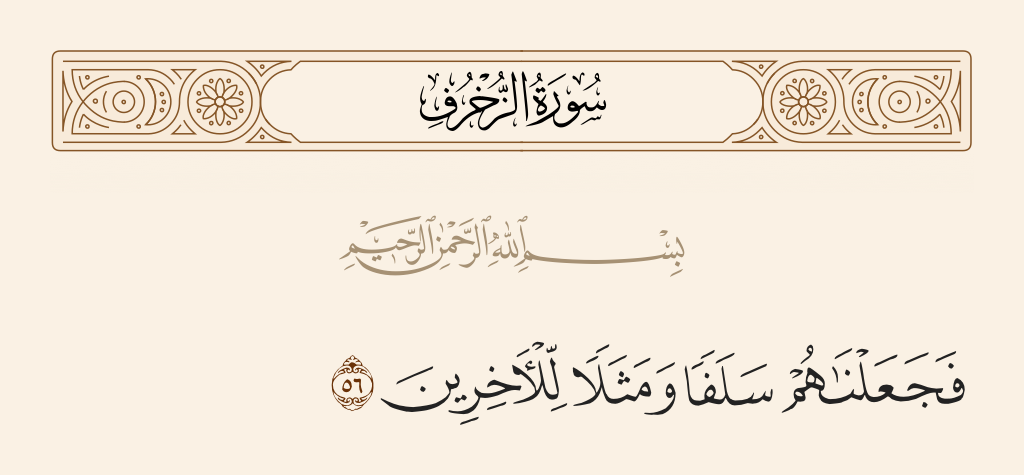 سُورَةُ الزُّخْرُفِ
بِسْمِ ٱللَّهِ ٱلرَّحْمَٰنِ ٱلرَّحِيمِ
فَجَعَلْنَٰهُمْ سَلَفًا وَمَثَلًا لِّلْأَخِرِينَ ٥٦